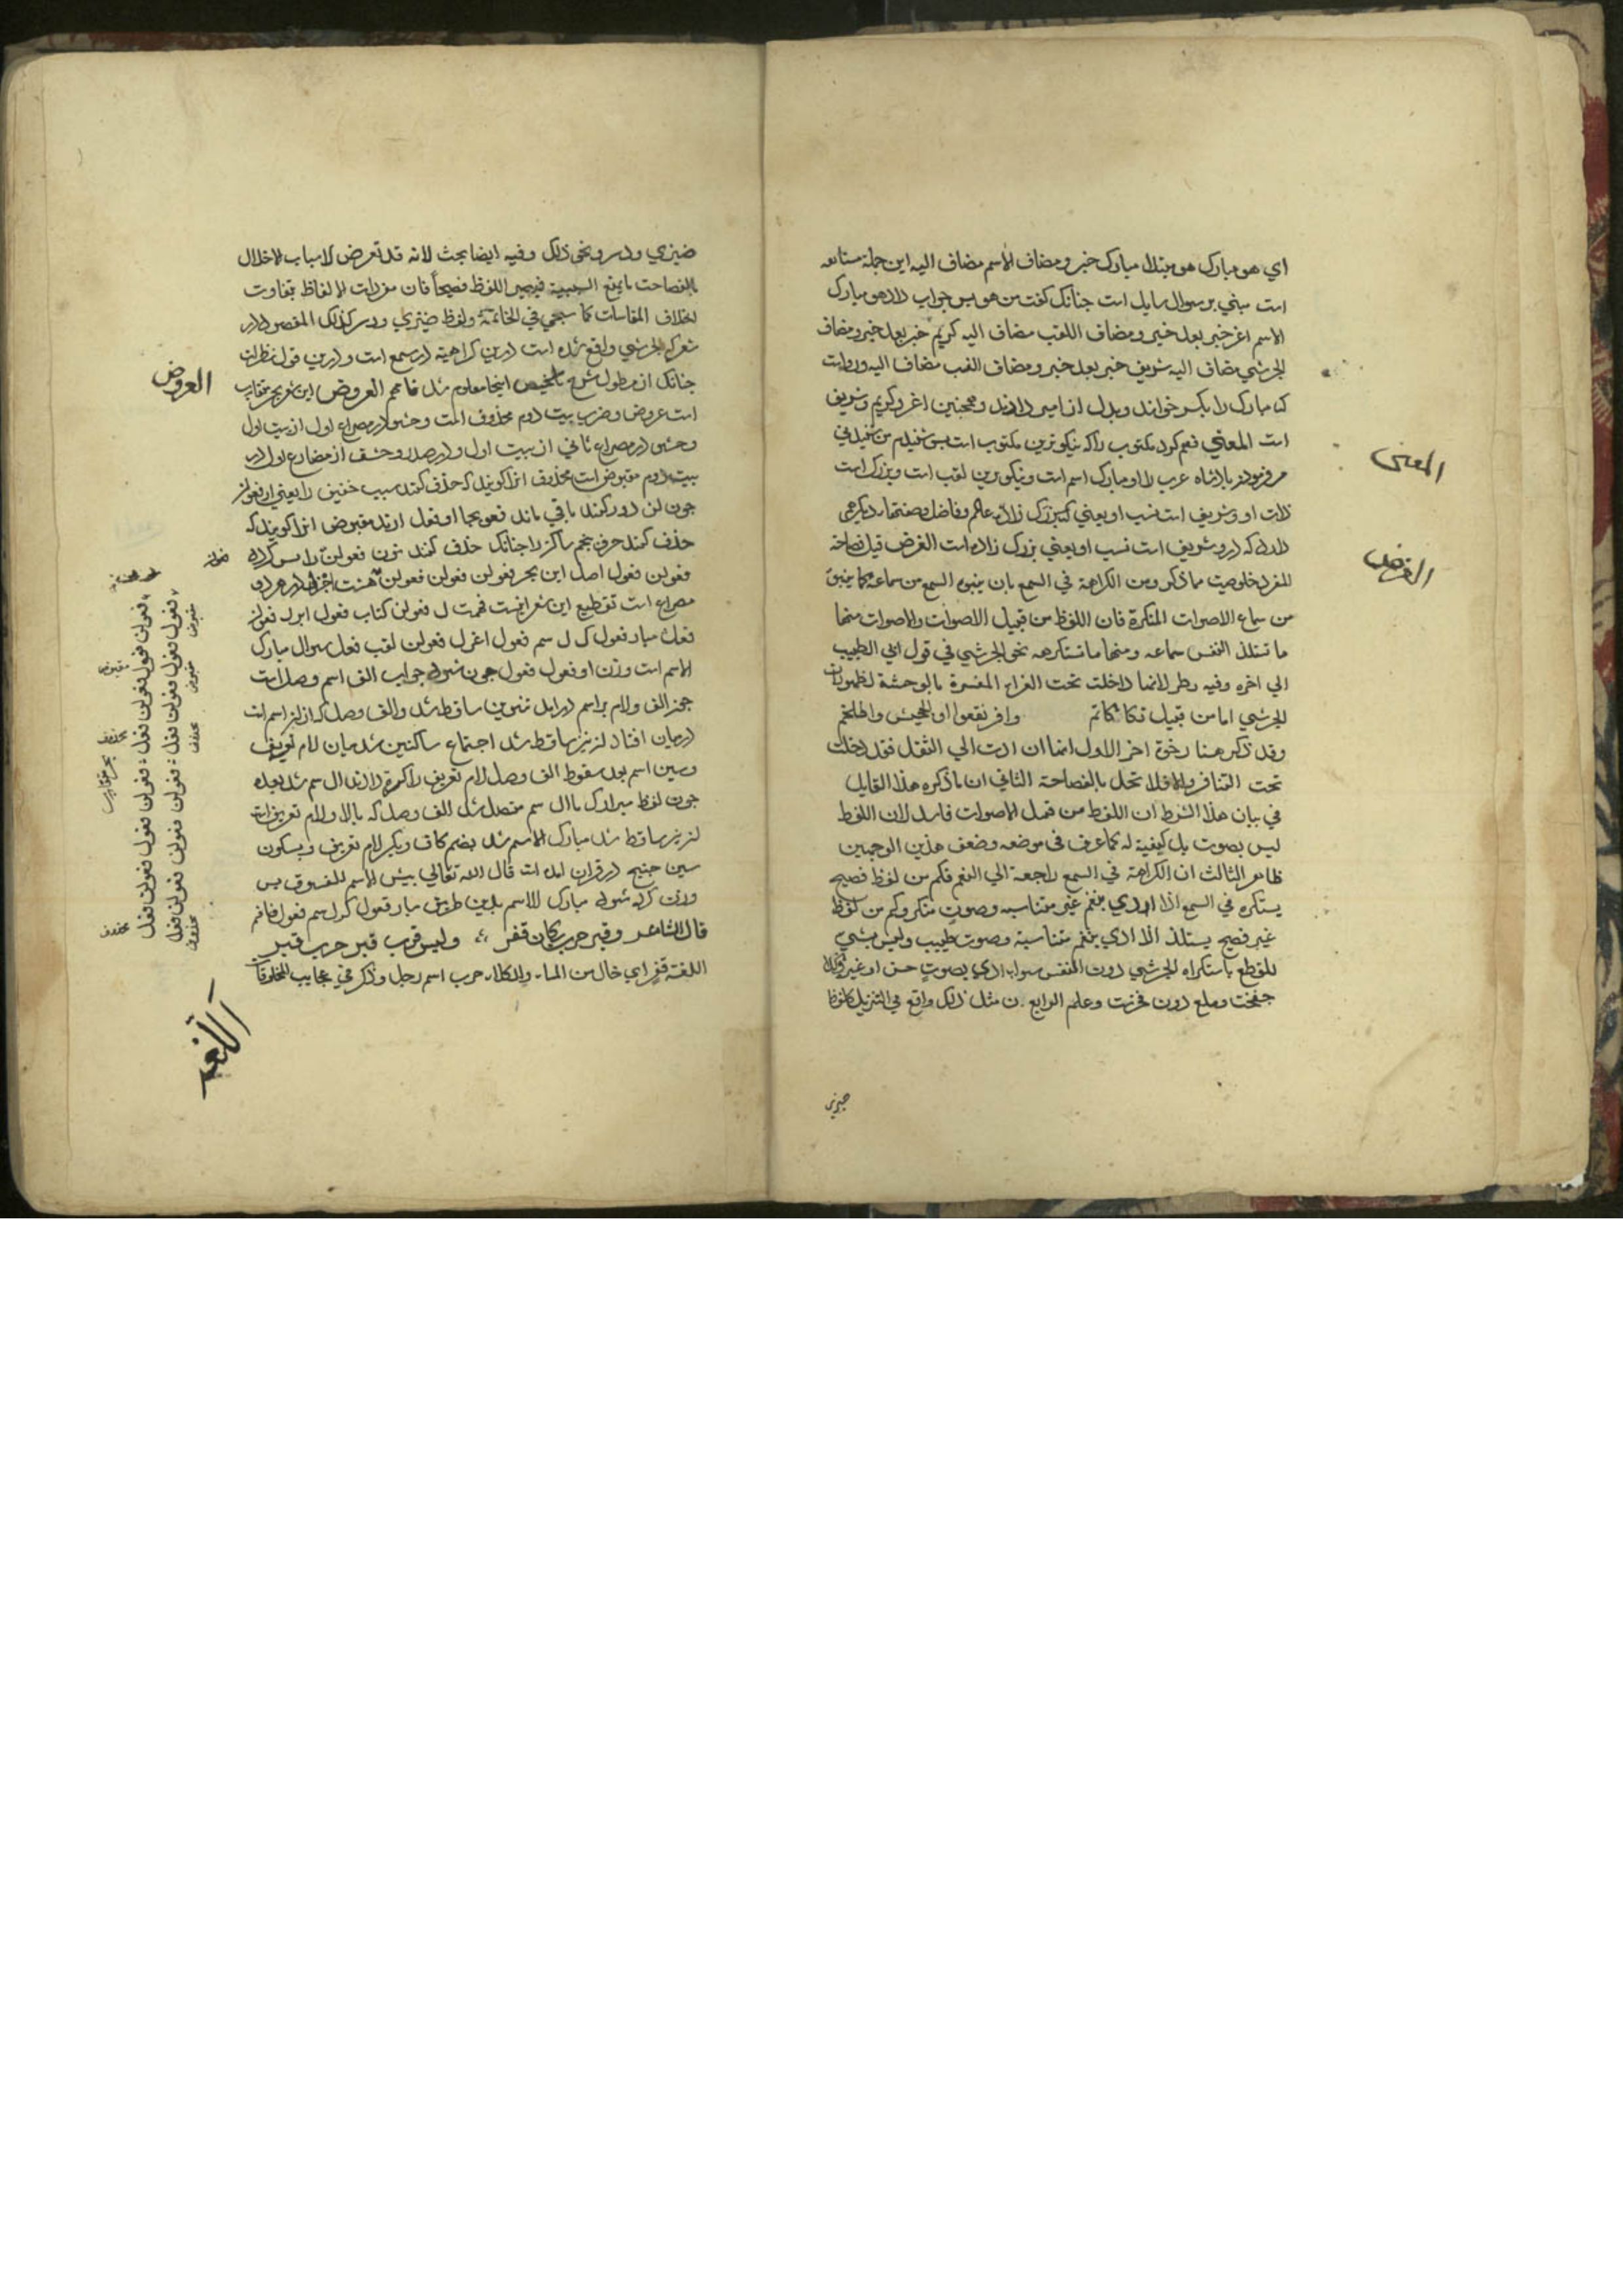 اي هو مبارك هو مبتدا مبارك خبر و مضاف الاسم مضاف اليه اين جملة مستانفه
است مبني بر سوال سايل است جنانك كفت من هو بس جواب داد هو مبارك
الاسم اغر خبر بعد خبر و مضاف اللقب مضاف اليه كريم خبر بعد خبر و مضاف
الجرشي مضاف اليه شريف خبر بعد خبر و مضاف النسب مضاف اليه و روايت
كه مبارك را بكسر خوانند و بدل از امير دارند و همجنين اغر و كريم و شريف
المعنى
است المعني كرد مكتوب را كه نيكوترين مكتوب است بس شنيدم من
بادشاه عرب را او مبارك اسم است و نيكوترين لقب است و بزرك است
ذات او و شريف است نسب او يعني بزرك زاده عالم و فاضل و صفتهاء ديكر
الغرض
كه در و شريف است نسب او يعني بزرك زاده است الغرض قيل فصاحة
المفرد خلوصه مما ذكر ومن الكراهة في السمع بان ينبو السمع من سماعه كما ينبو
من سماع الاصوات المنكرة فان اللفظ من قبيل الاصوات والاصوات منها
ما تستلذ النفس سماعه ومنها ما تستكرهه نحو الجرشي في قول ابي الطيب
الي اخره وفيه نظر لانها داخلت تحت الغرابة المفسرة بالوحشة لظهور ان
الجرشي اما من قبيل تكاكاتم وافرنقعوا او الجحيش واطلخم
وقد ذكر هنا وجوه اخر الاول انها ان ادت الي الثقل فقد دخلت
تحت التنافر والا فلا تخل بالفصاحة الثاني ان ما ذكره هذا القايل
في بيان هذا الشرط ان اللفظ من قبيل الاصوات فاسد لان اللفظ
ليس بصوت بل كيفية له كما عرف في موضعه وضعف هذين الوجهين
ظاهر الثالث ان الكراهة في السمع راجعة الي النغم فكم من لفظ فصيح
يستكره في السمع اذا ادي بنغم غير متناسبه وصوت منكر وكم من لفظ
غير فصيح يستلذ اذا ادي بنغم متناسبة وصوت طيب وليس بشي
للقطع باستكراه الجرشي دون النفس سواء ادي بصوت حسن او غيره وكذا
جفخت وملع دون فخرت وعلم الرابع ان مثل ذلك واقع في التنزيل كلفظ
ضيزي
ضيزي ودسر ونحو ذلك وفيه ايضا بحث لانه قد تعرض لاسباب الاخلال
بالفصاحت ما يمنع السببية فيصير اللفظ فصيحا فان مفردات الالفاظ تتفاوت
باختلاف المقامات كما سيجي في الخاتمة ولفظ ضيزي ودسر كذلك المقصود در
شعر كه الجرشي واقع شده است درين كراهية در سمع است و درين قول نظر است
العروض
جنانك از مطول شرح تلخيص اينجا معلوم شد فافهم العروض اين شعر بحر متقارب
است عروض و ضرب بيت دوم محذوف است و حشو در مصراع اول از بيت اول
و حشو در مصراع ثاني از بيت اول و در صدر و حشو از مصراع اول در
بيت دوم مقبوض است محذوف انرا كويند كه حذف كنند سبب خفيف را يعني از فعولن
جون لن دور كنند باقي ماند فعو بجاء او فعل ارند مقبوض انرا كويند كه
حذف كنند حرف بنجم ساكن را جنانك حذف كنند نون فعولن را بس كردد
فعولن فعول اصل اين بحر فعولن فعولن فعولن فعولن هشت اجزا در هر دو
مصراع است تقطيع اين شعر اينست فهمت ل فعولن كتاب فعول ابر ر فعولن
فعل مبار فعول ك ل سم فعول اغر ل فعولن لقب فعل سوال مبارك
الاسم است وزن او فعول فعول جون شود جواب الف اسم وصل است
جون الف و لام بر اسم در امد تنوين ساقط شد و الف وصل كه از ان اسم است
در ميان افتاد ان نيز ساقط شد اجتماع ساكنين شد ميان لام تعريف
و سين اسم بعد سقوط الف وصل لام تعريف را كسره دادند ال سم شد بعده
جون لفظ مبارك با ال سم متصل شد الف وصل كه بالاء لام تعريف است
ان نيز ساقط شد مبارك الاسم شد بضم كاف و بكسر لام تعريف و بسكون
سين جنين در قران امده است قال الله تعالي بيس الاسم الفسوق بس
وزن كرده شود مبارك الاسم بدين طريق مبار فعول ك ل سم فعول فافهم
قال الشاعر وقبر حرب بمكان قفر وليس قرب قبر حرب قبر
اللغة قفر اي خال من الماء والكلاء حرب اسم رجل وذكر في عجايب المخلوقات
اللغة
فعولن فعول فعولن فعل فعولن فعول فعولن فعل
فعول فعول فعولن فعل فعولن فعولن فعولن فعل
مقبوض
مقبوض
محذوف
بحر متقارب
محذوف